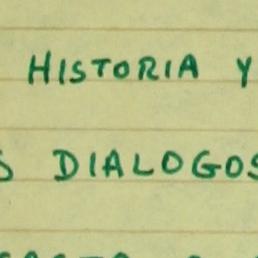 HISTORIA Y
S DIALOGOS